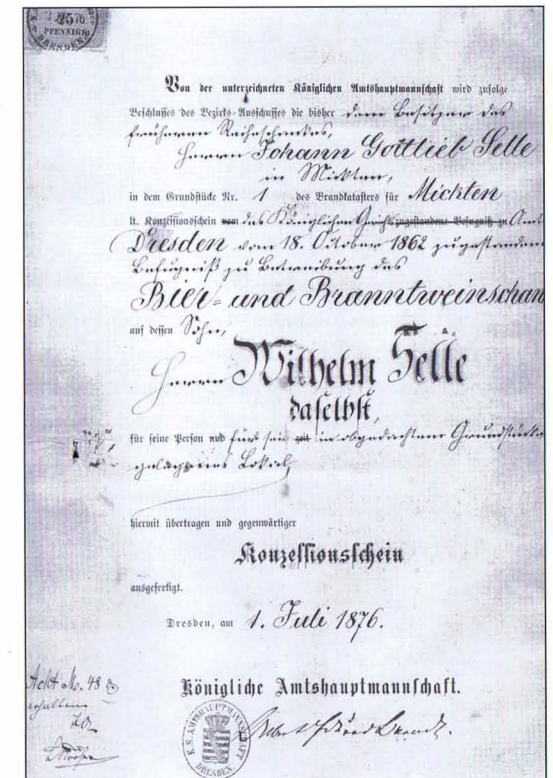 25
PFENNIGE
DRESDEN
Von der unterzeichneten Königlichen Amtshauptmannschaft wird zufolge
Beschlusses des Bezirks-Ausschusses die bisher dem Besitzer des
früheren Reiheschankes,
Herrn Johann Gottlieb Selle
in Mickten,
in dem Grundstücke Nr. 1 des Brandkatasters für Mickten
lt. Konzessionschein vom des Königlichen zugestandene Befugniß zu Amt
Dresden vom 18. October 1862 zugestandene
Befugniß zu Betreibung des
Bier- und Branntweinschan
auf dessen Sohn,
Herrn Wilhelm Selle
daselbst,
für seine Person und für sein zeit in obgedachtem Grundstücke
gelegenes Lokal
hiermit übertragen und gegenwärtiger
Konzessionsschein
ausgefertigt.
Dresden, am 1. Juli 1876.
Königliche Amtshauptmannschaft.
K.S. AMTSHAUPTMANNSCHAFT
DRESDEN
48
erhalten